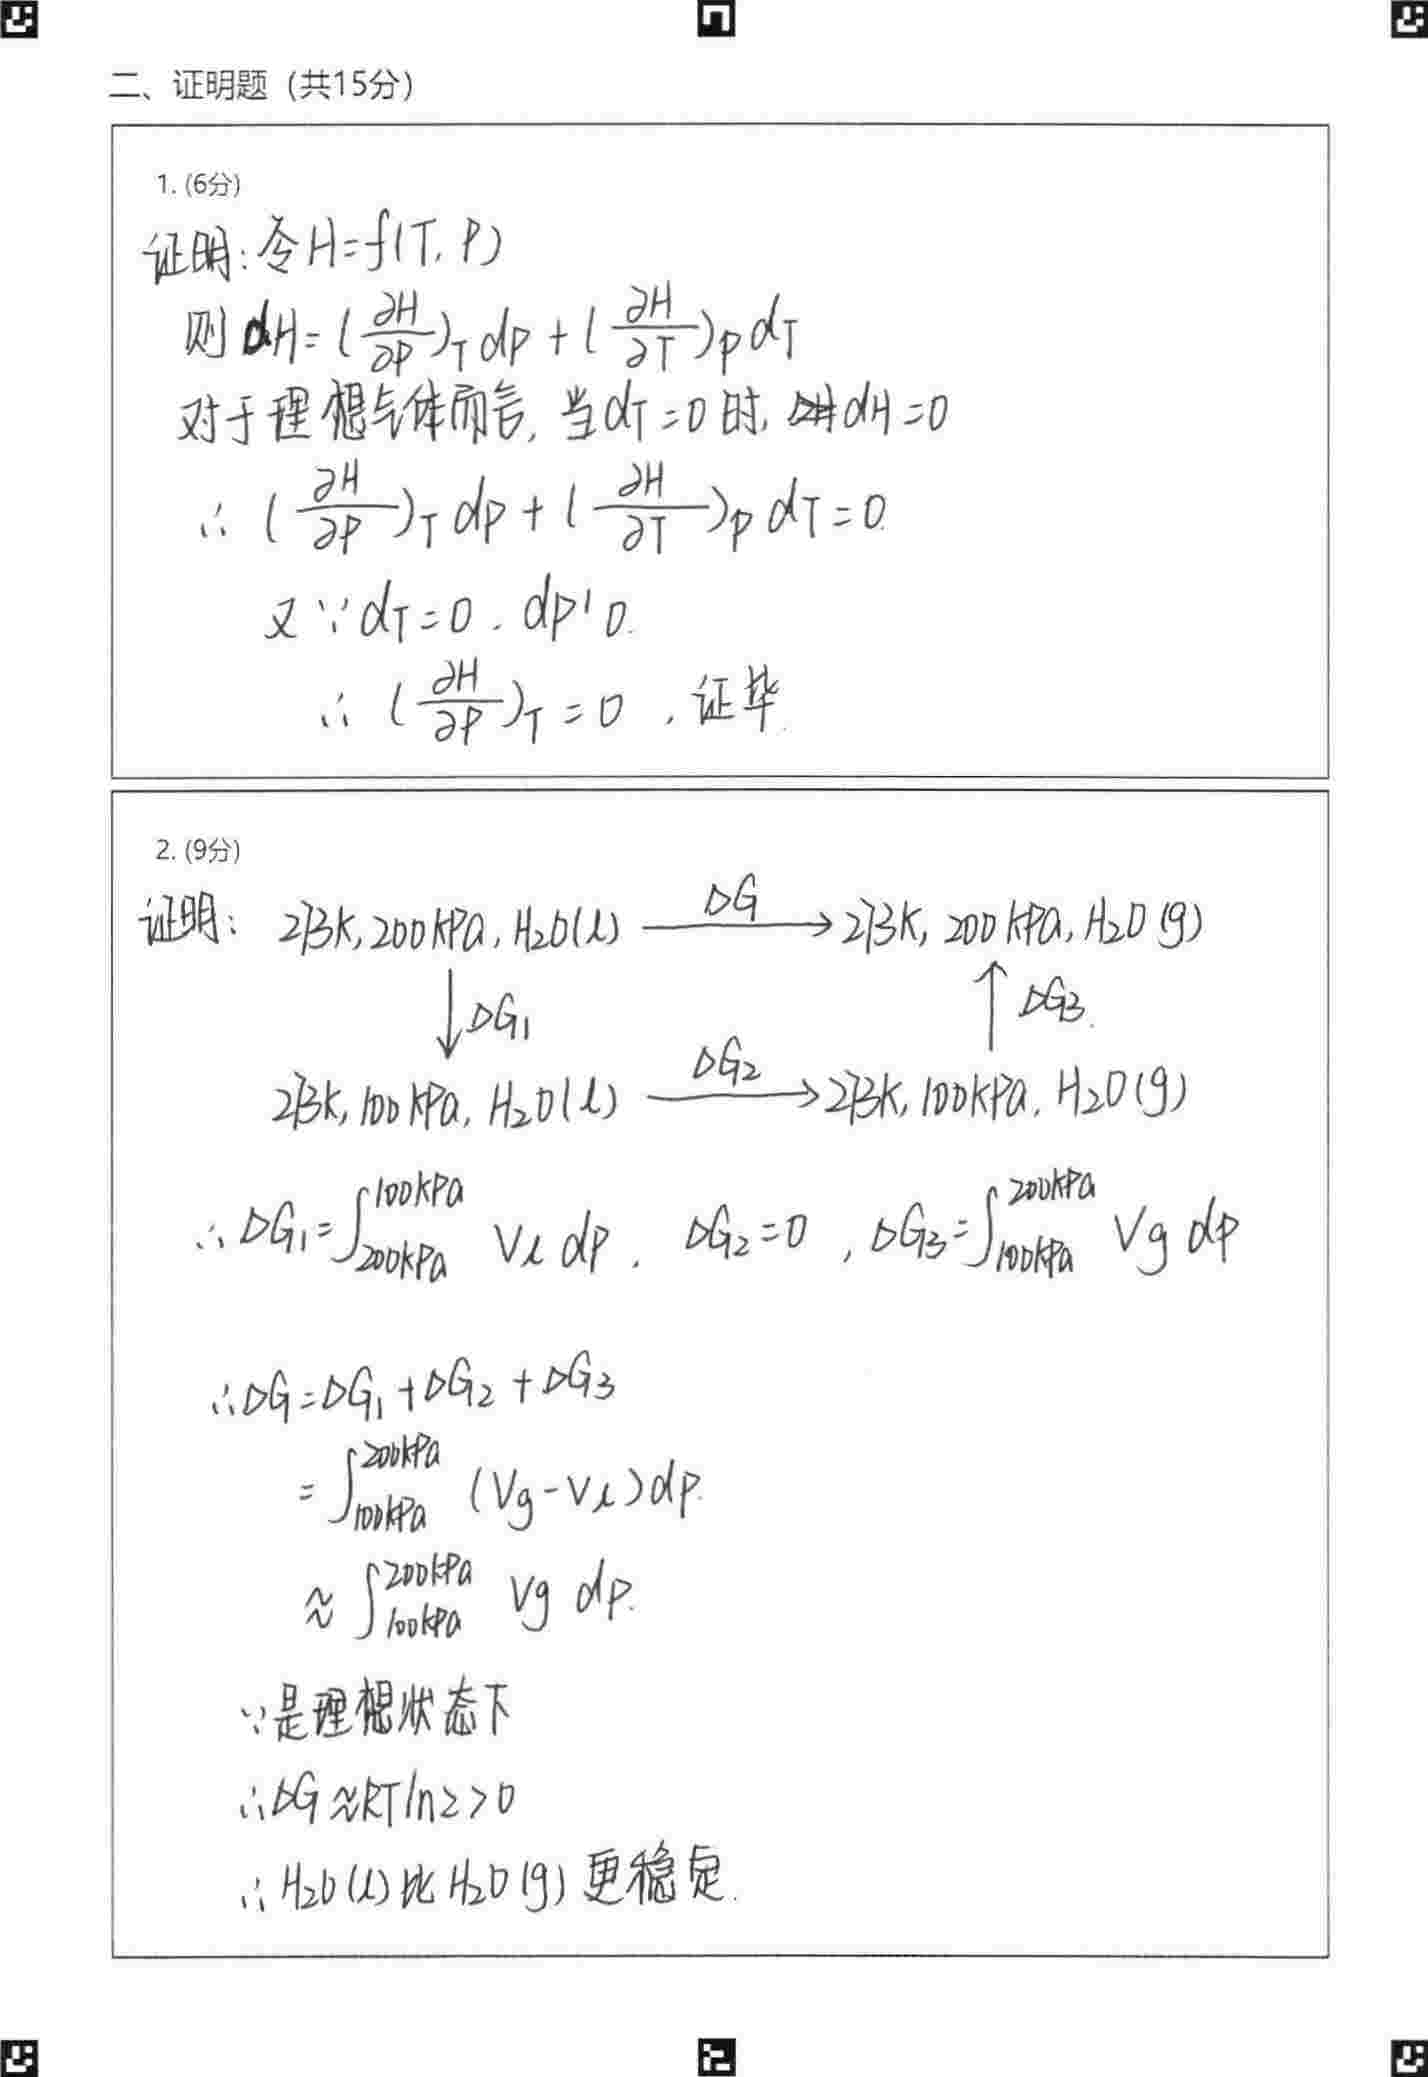 二、证明题（共15分）
1. (6分)
证明: 令H=f(T, P)
则 dH=(∂H/∂P)_T dp + (∂H/∂T)_P dT
对于理想气体而言, 当dT=0时, dH=0
∴ (∂H/∂P)_T dp + (∂H/∂T)_P dT=0.
又∵dT=0. dp'0.
∴ (∂H/∂P)_T=0, 证毕.
2. (9分)
证明: 273K, 200kPa, H₂O(l) —ΔG→ 273K, 200kPa, H₂O(g)
↓ΔG₁ ↑ΔG₃.
273K, 100kPa, H₂O(l) —ΔG₂→ 273K, 100kPa, H₂O(g)
∴ΔG₁=∫_{200kPa}^{100kPa} Vl dp, ΔG₂=0, ΔG₃=∫_{100kPa}^{200kPa} Vg dp
∴ΔG=ΔG₁+ΔG₂+ΔG₃
=∫_{100kPa}^{200kPa} (Vg-Vl)dp.
≈∫_{100kPa}^{200kPa} Vg dp.
∵是理想状态下
∴ΔG≈RTln2>0
∴H₂O(l)比H₂O(g)更稳定.